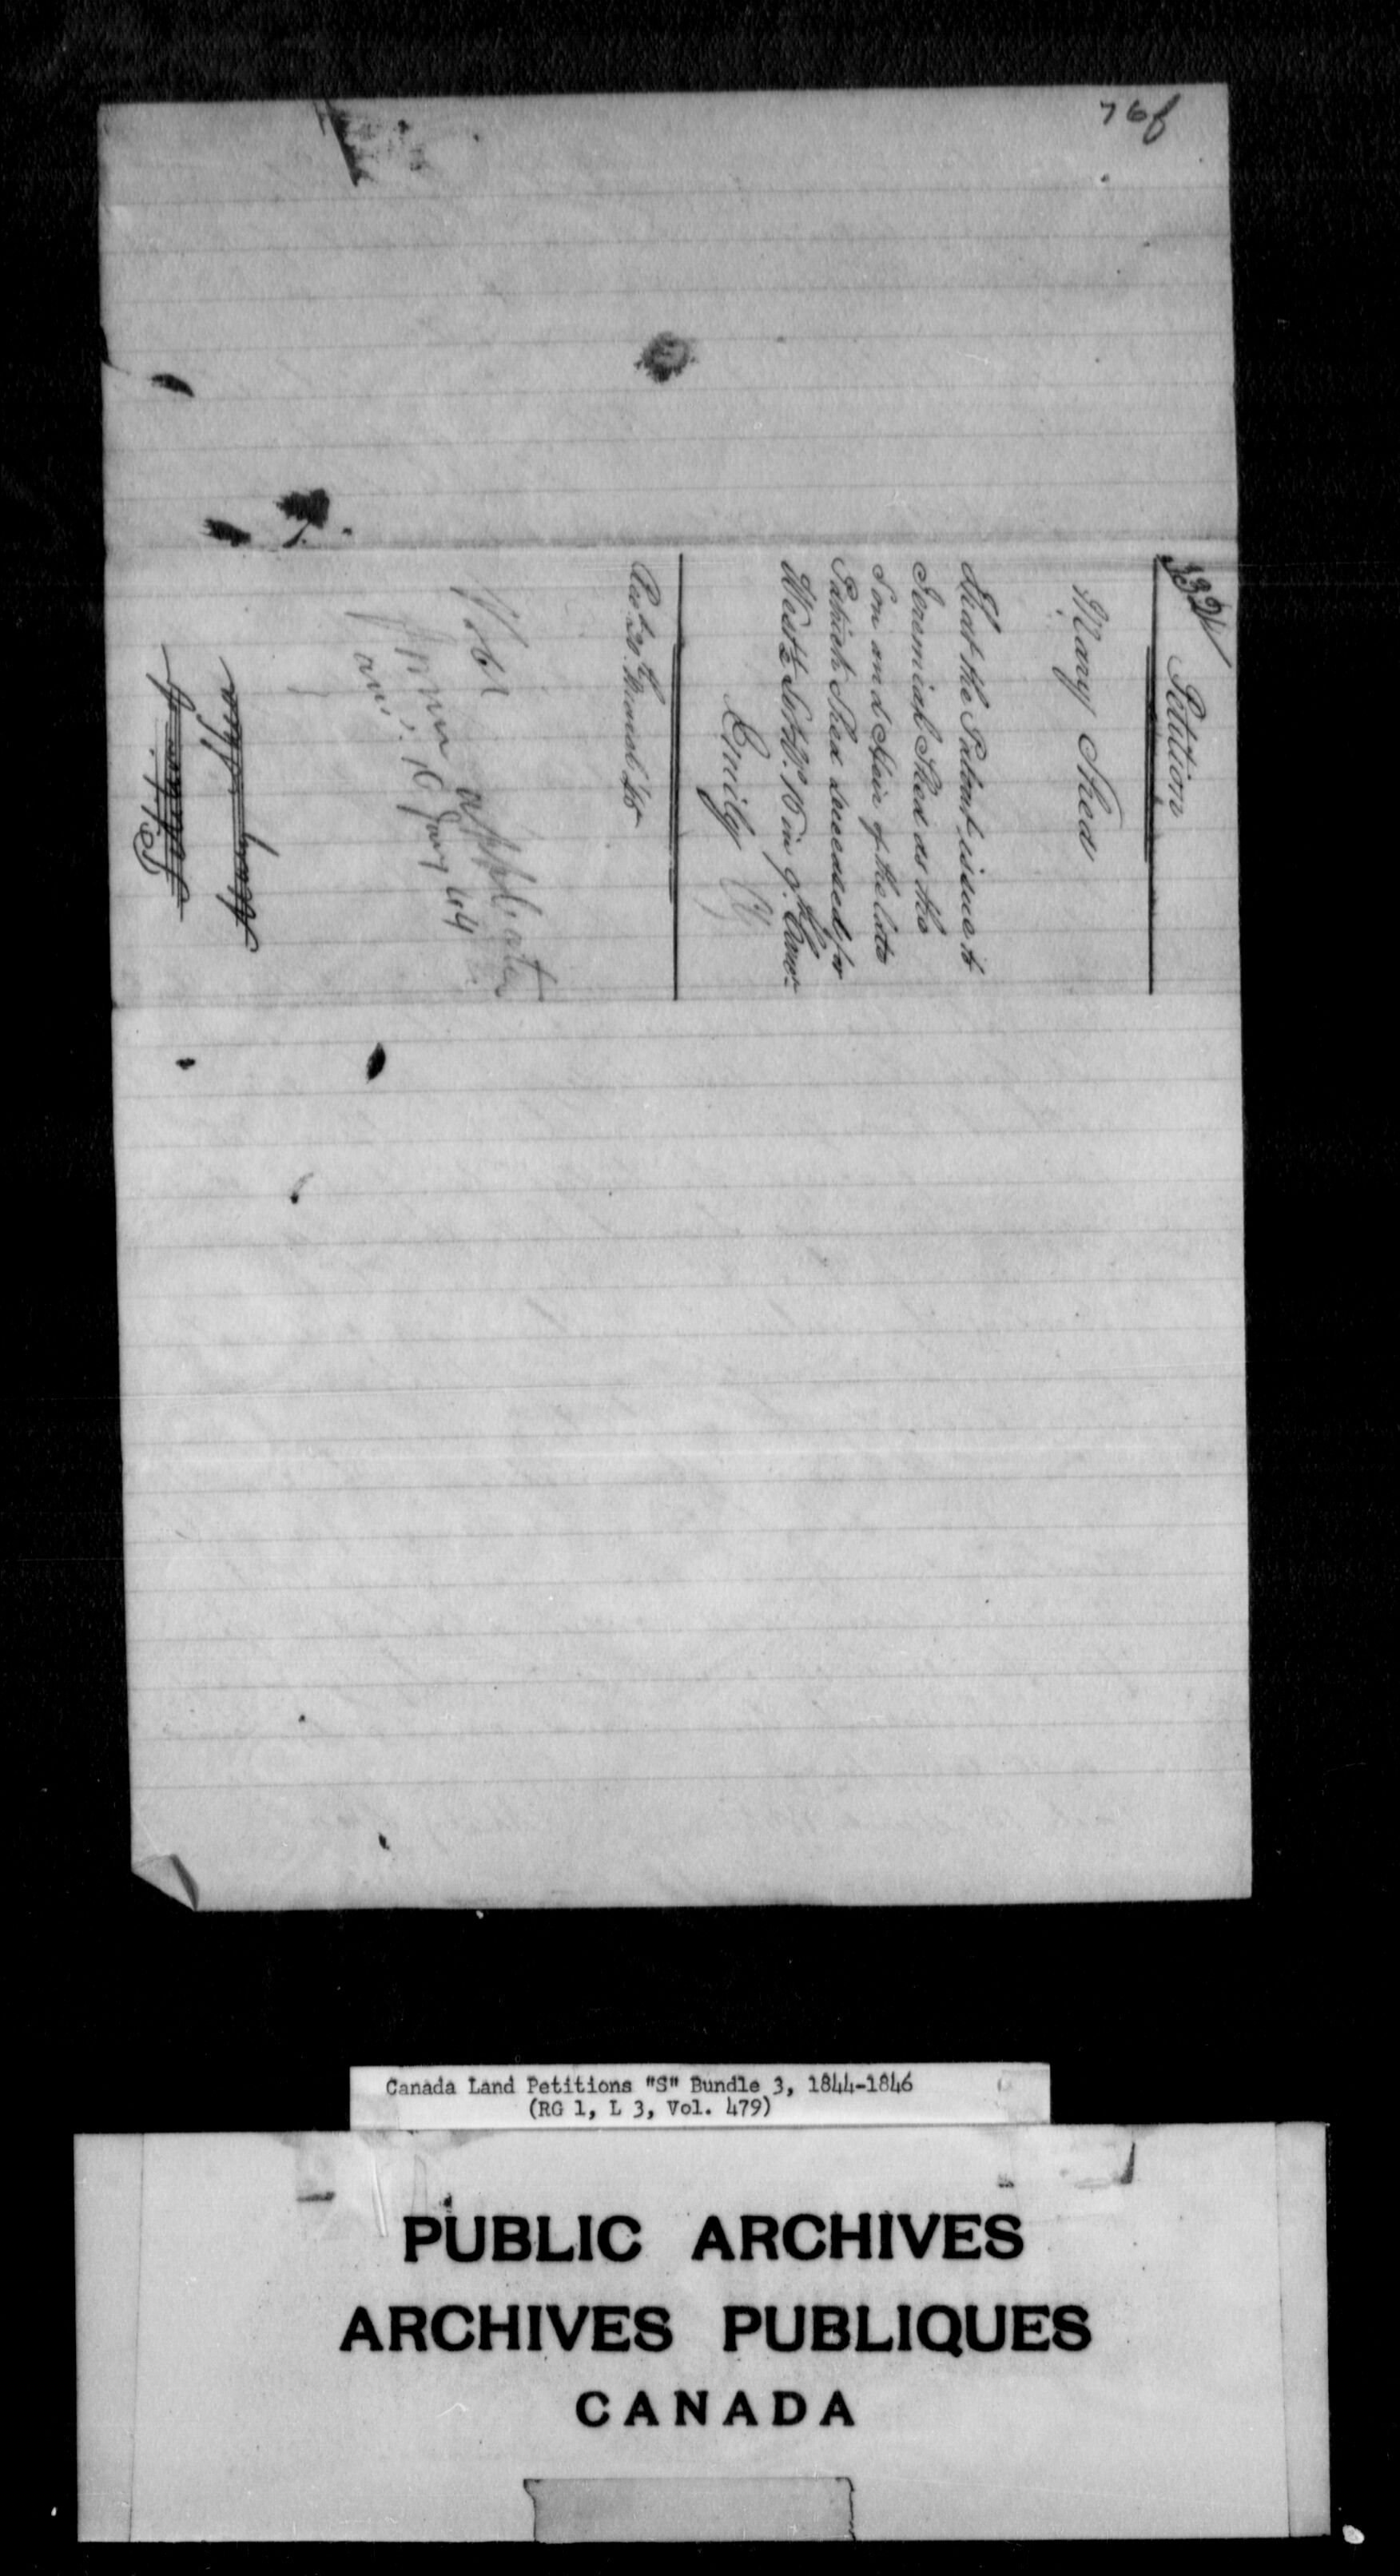 76f
332 Petition
Mary Shea
That the Patent issue to
Jeremiah Shea as the
Son and Heir of the late
Patrick Shea deceased for
West ½ Lot No. 16 in 9th Conn
Emily
Recd. 20th March 45
Vobi
former applicatn
ans. 16 Jany 44
Mary Shea
Petition of
Canada Land Petitions "S" Bundle 3, 1844-1846
(RG 1, L 3, Vol. 479)
PUBLIC ARCHIVES
ARCHIVES PUBLIQUES
CANADA